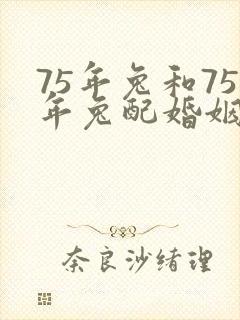 75年兔和75
年兔配婚姻
奈良沙绪理